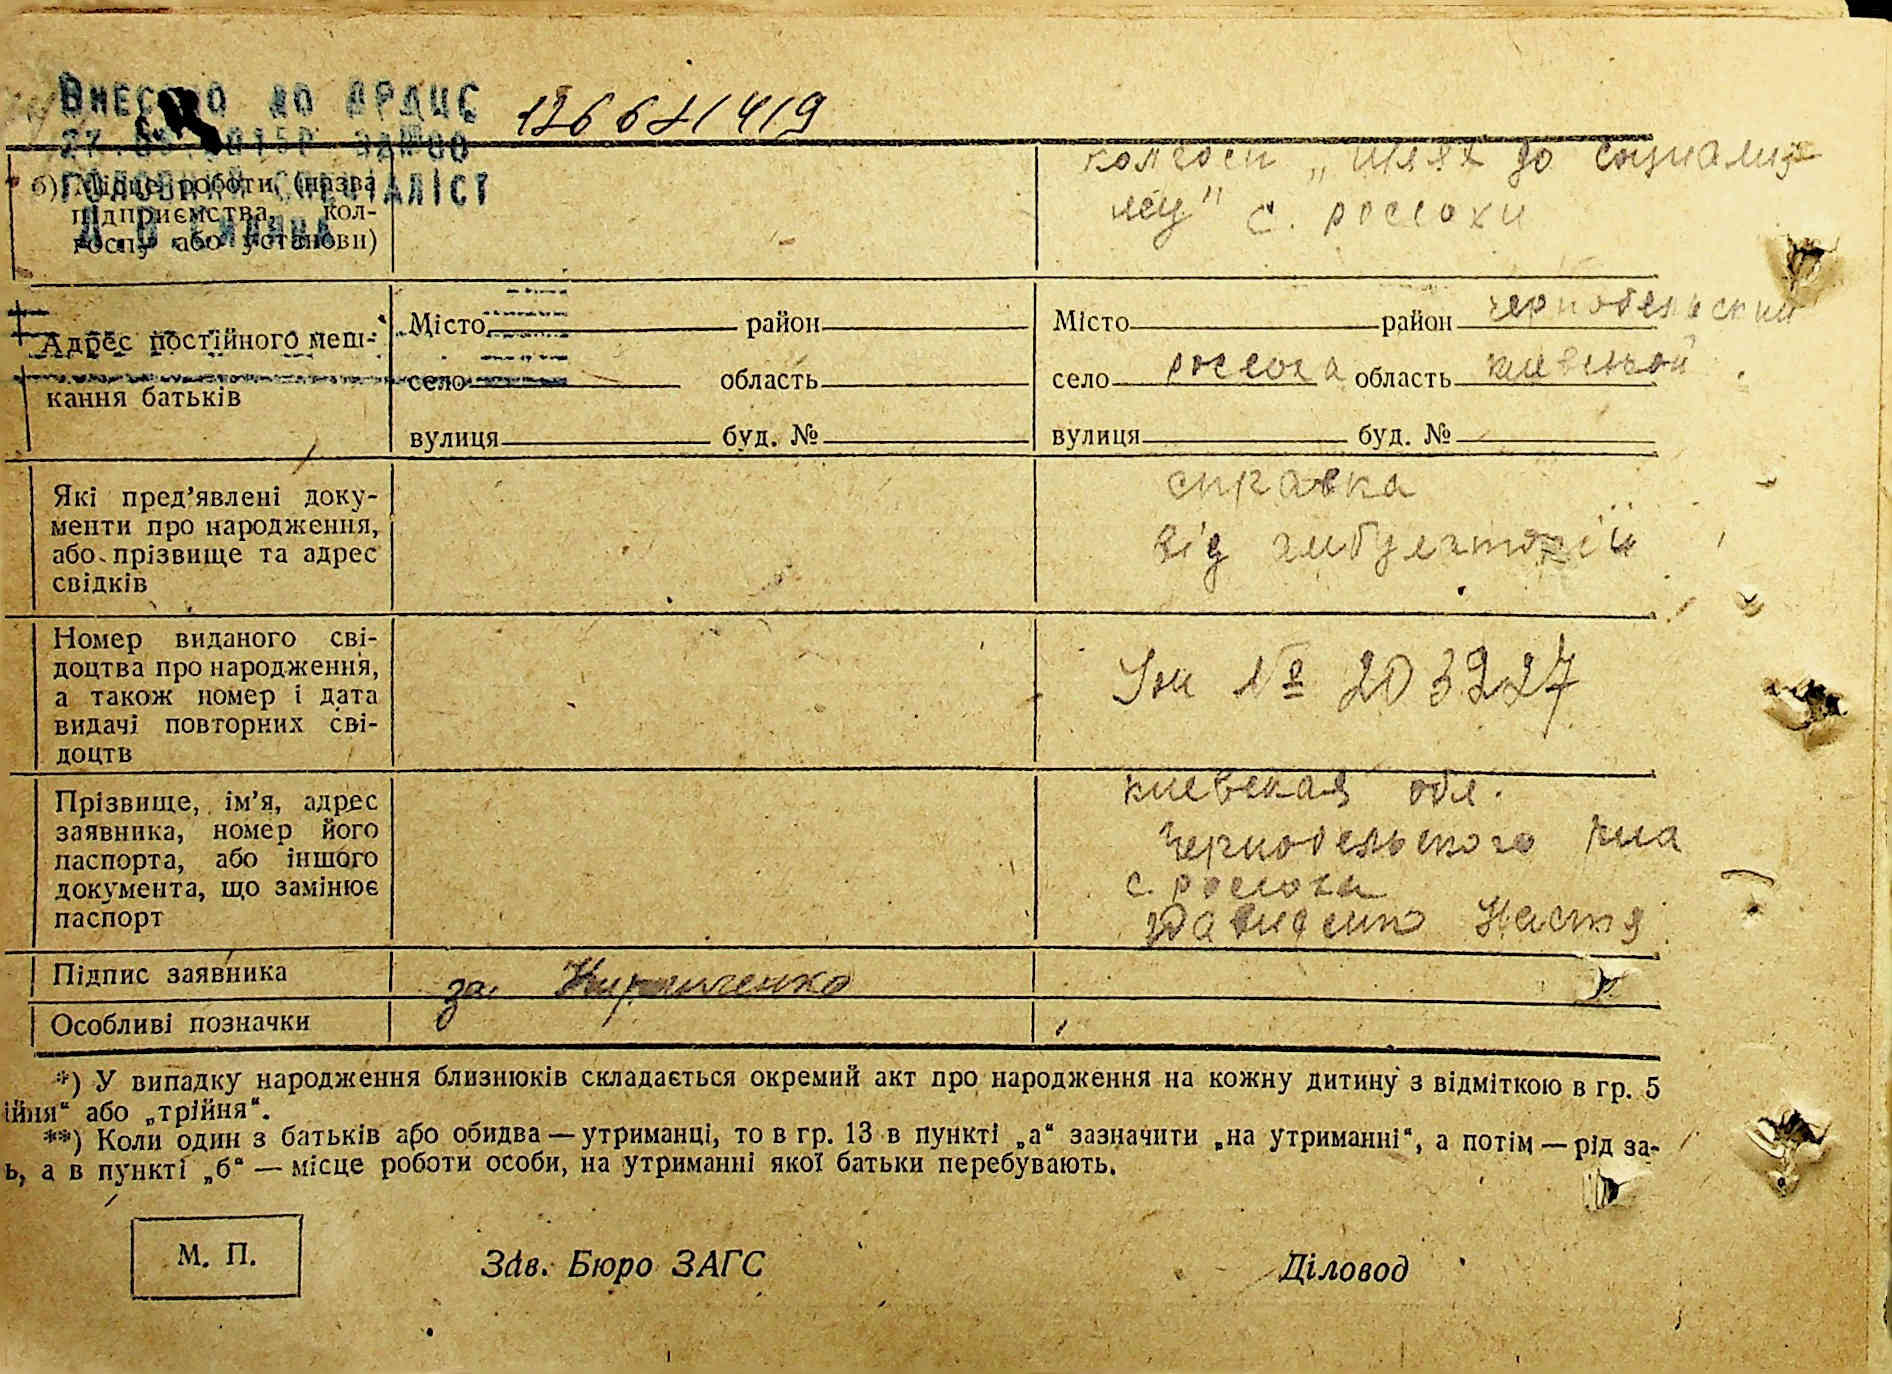 Внесено до ДРАЦС
ГОЛОВНИЙ СПЕЦІАЛІСТ
б) Місце роботи (назва
підприємства, кол-
госпу або установи)
колгосп „Шлях до социализ
му" с. россохи
Адрес постійного меш-
кання батьків
Місто район
село область
вулиця буд. №
Місто район чернобельский
село россоха область киевской
вулиця буд. №
Які пред’явлені доку-
менти про народження,
або прізвище та адрес
свідків
справка
від амбулаторії
Номер виданого сві-
доцтва про народження,
а також номер і дата
видачі повторних сві-
доцтв
№ 203227
Прізвище, ім’я, адрес
заявника, номер його
паспорта, або іншого
документа, що замінює
паспорт
киевская обл.
чернобельского
с. россоха
Давиденко Настя
Підпис заявника
за Кириченко
Особливі позначки
*) У випадку народження близнюків складається окремий акт про народження на кожну дитину з відміткою в гр. 5
ійня“ або „трійня“.
**) Коли один з батьків або обидва — утриманці, то в гр. 13 в пункті „а“ зазначити „на утриманні“, а потім — рід за-
ь, а в пункті „б“ — місце роботи особи, на утриманні якої батьки перебувають.
М. П.
Зав. Бюро ЗАГС
Діловод